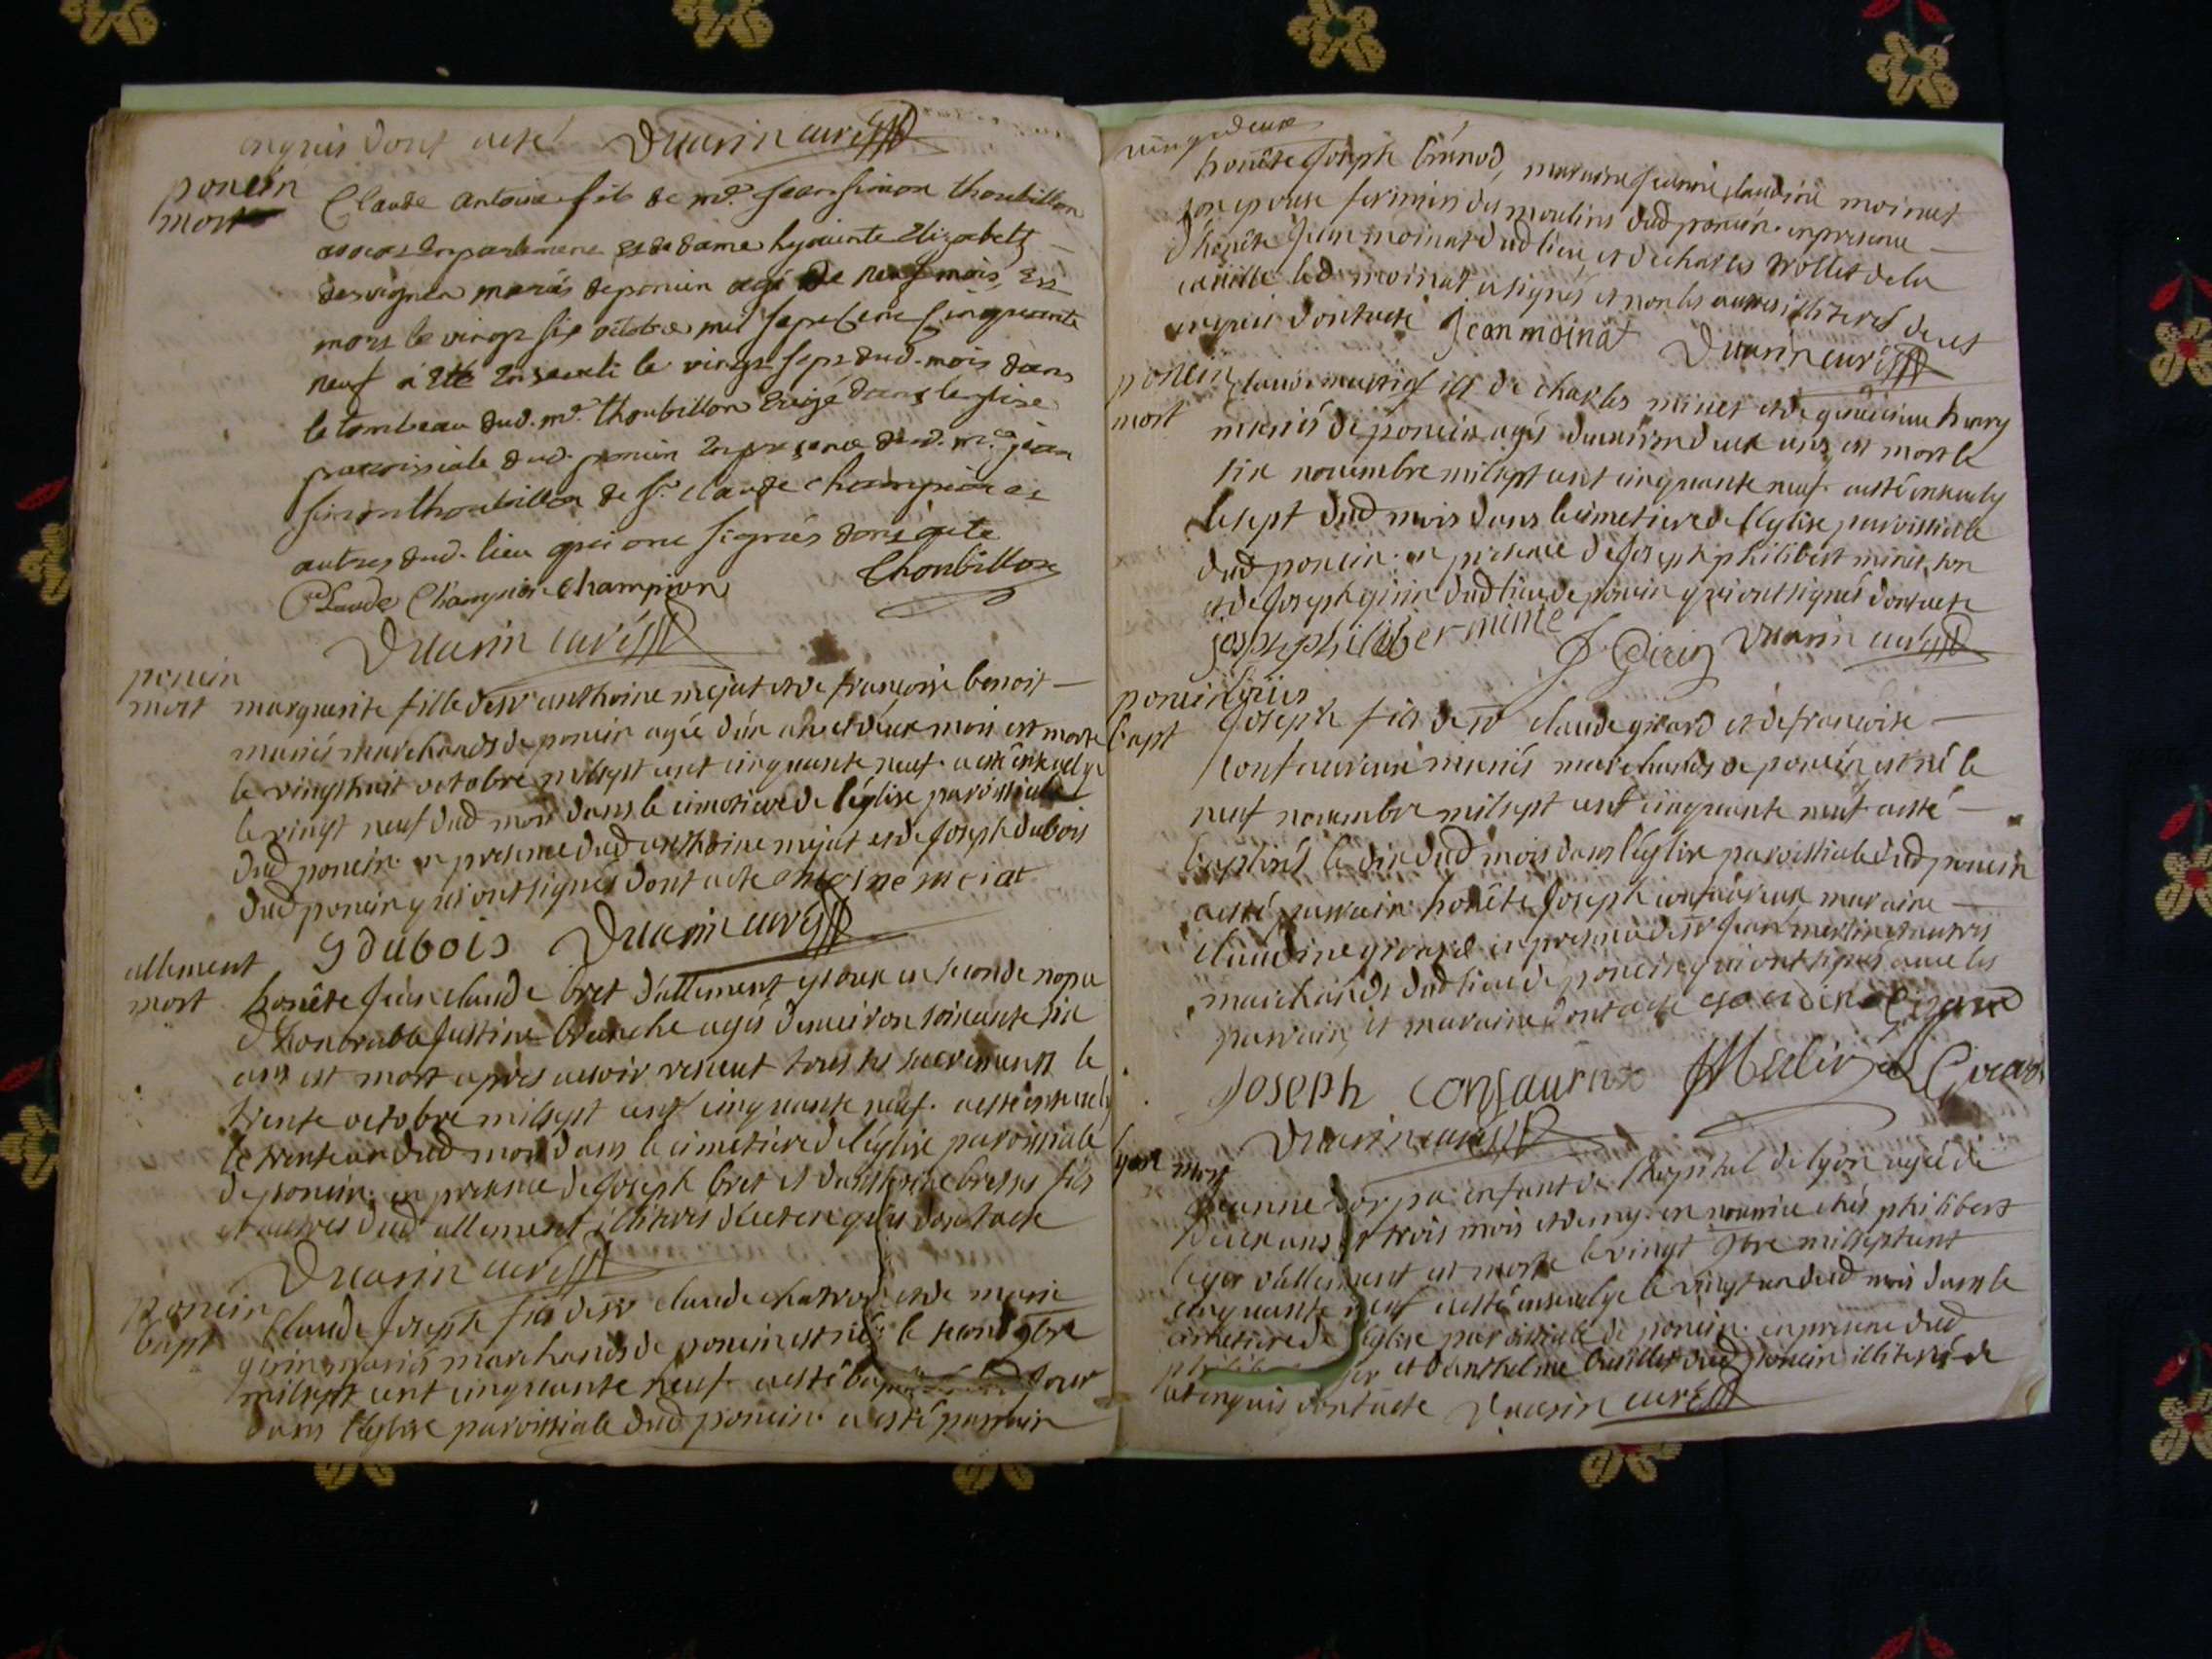 enquis dont acte Duarin curé
poncin
mort
Claude antoine fils de mr. jean simon thoubillon
avocat en parlement et de dame hyacinte Elizabeth
mariés de poncin agé de neuf mois, Est
mort le vingt six octobre mil sept cent cinquante
neuf a été Enseveli le vingt sept dud. mois dans
le tombeau dud. mr. thoubillon Erigé dans leglise
paroissiale dud. poncin En presence dud. mr. jean
simon thoubillon de sr. claude champion et
autres dud. lieu qui ont signés dont acte
Claude Champion champion thoubillon
Duarin curé
poncin
mort
marguerite fille de sr anthoine mejat et de francoise benoit
mariés marchands de poncin agée d'un an et deux mois est morte
le vingt huit octobre mil sept cent cinquante neuf. a esté ensevelye
le vingt neuf dud mois dans le cimetiere de l'église paroissiale
dud poncin. en presence dud anthoine mejat et de Joseph dubois
dud poncin qui ont signés dont acte antoine meiat
J dubois Duarin curé
allement
mort
honête Jean claude bret d'allement epoux en seconde nopce
d'honorable Justine blanche agés d'environ soixante six
ans est mort apres avoir receut tous ses sacrements le
trente octobre mil sept cent cinquante neuf. a esté ensevely
le trente un dud mois dans le cimetiere de l'église paroissiale
de poncin. en presence de Joseph bret et d'anthoine bret ses fils
et autres dud allement illiterés de ce enquis dont acte
Duarin curé
poncin
bapt
Claude Joseph fils de sr claude chatrod et de marie
girin mariés marchands de poncin est né le second 9bre
mil sept cent cinquante neuf. a esté jour
dans l'église paroissiale dud poncin. a esté parrain
vingt deux
honête Joseph brunod, marraine Jeanne claudine moinat
son epouse fermiers des moulins dud poncin. en presence
d'honête Jean moinat dud lieu et de charles trollet de la
led moinat a signés et non les autres illiterés de ce
enquis dont acte Jean moinat Duarin curé
poncin
mort
claude marie fils de charles minet et de genevieve hurry
mariés de poncin agés d'environ deux ans est mort le
six novembre mil sept cent cinquante neuf. a esté ensevely
le sept dud mois dans le cimetiere de l'église paroissiale
dud poncin. en presence de Joseph philibert minet, son
et de Joseph girin dud lieu de poncin qui ont signés dont acte
joseph philibert minet J Girin Duarin curé
poncin
bapt
Joseph fils de sr claude girard et de francoise
confavreux mariés marchands de poncin est né le
neuf novembre mil sept cent cinquante neuf a esté
baptisés le dix dud mois dans l'église paroissiale dud poncin
a esté parrain honête Joseph confavreux maraine
claudine girard en presence de sr Jean merlin et autres
marchands dud lieu de poncin qui ont signés avec les
parrain et maraine dont acte claudine Girard
Joseph Confaurux JMerlin Girard
Duarin curé
lyon mort
Jeanne enfant de l'hopital de lyon agée de
deux ans et trois mois et demy. en nourrice chés philibert
leger d'allement est morte le vingt 9bre mil sept cent
cinquante neuf a esté ensevelye le vingt un dud mois dans le
cimetiere de l'église paroissiale de poncin. en presence dud
et d'anthelme dud poncin illiterés de
ce enquis dont acte Duarin curé